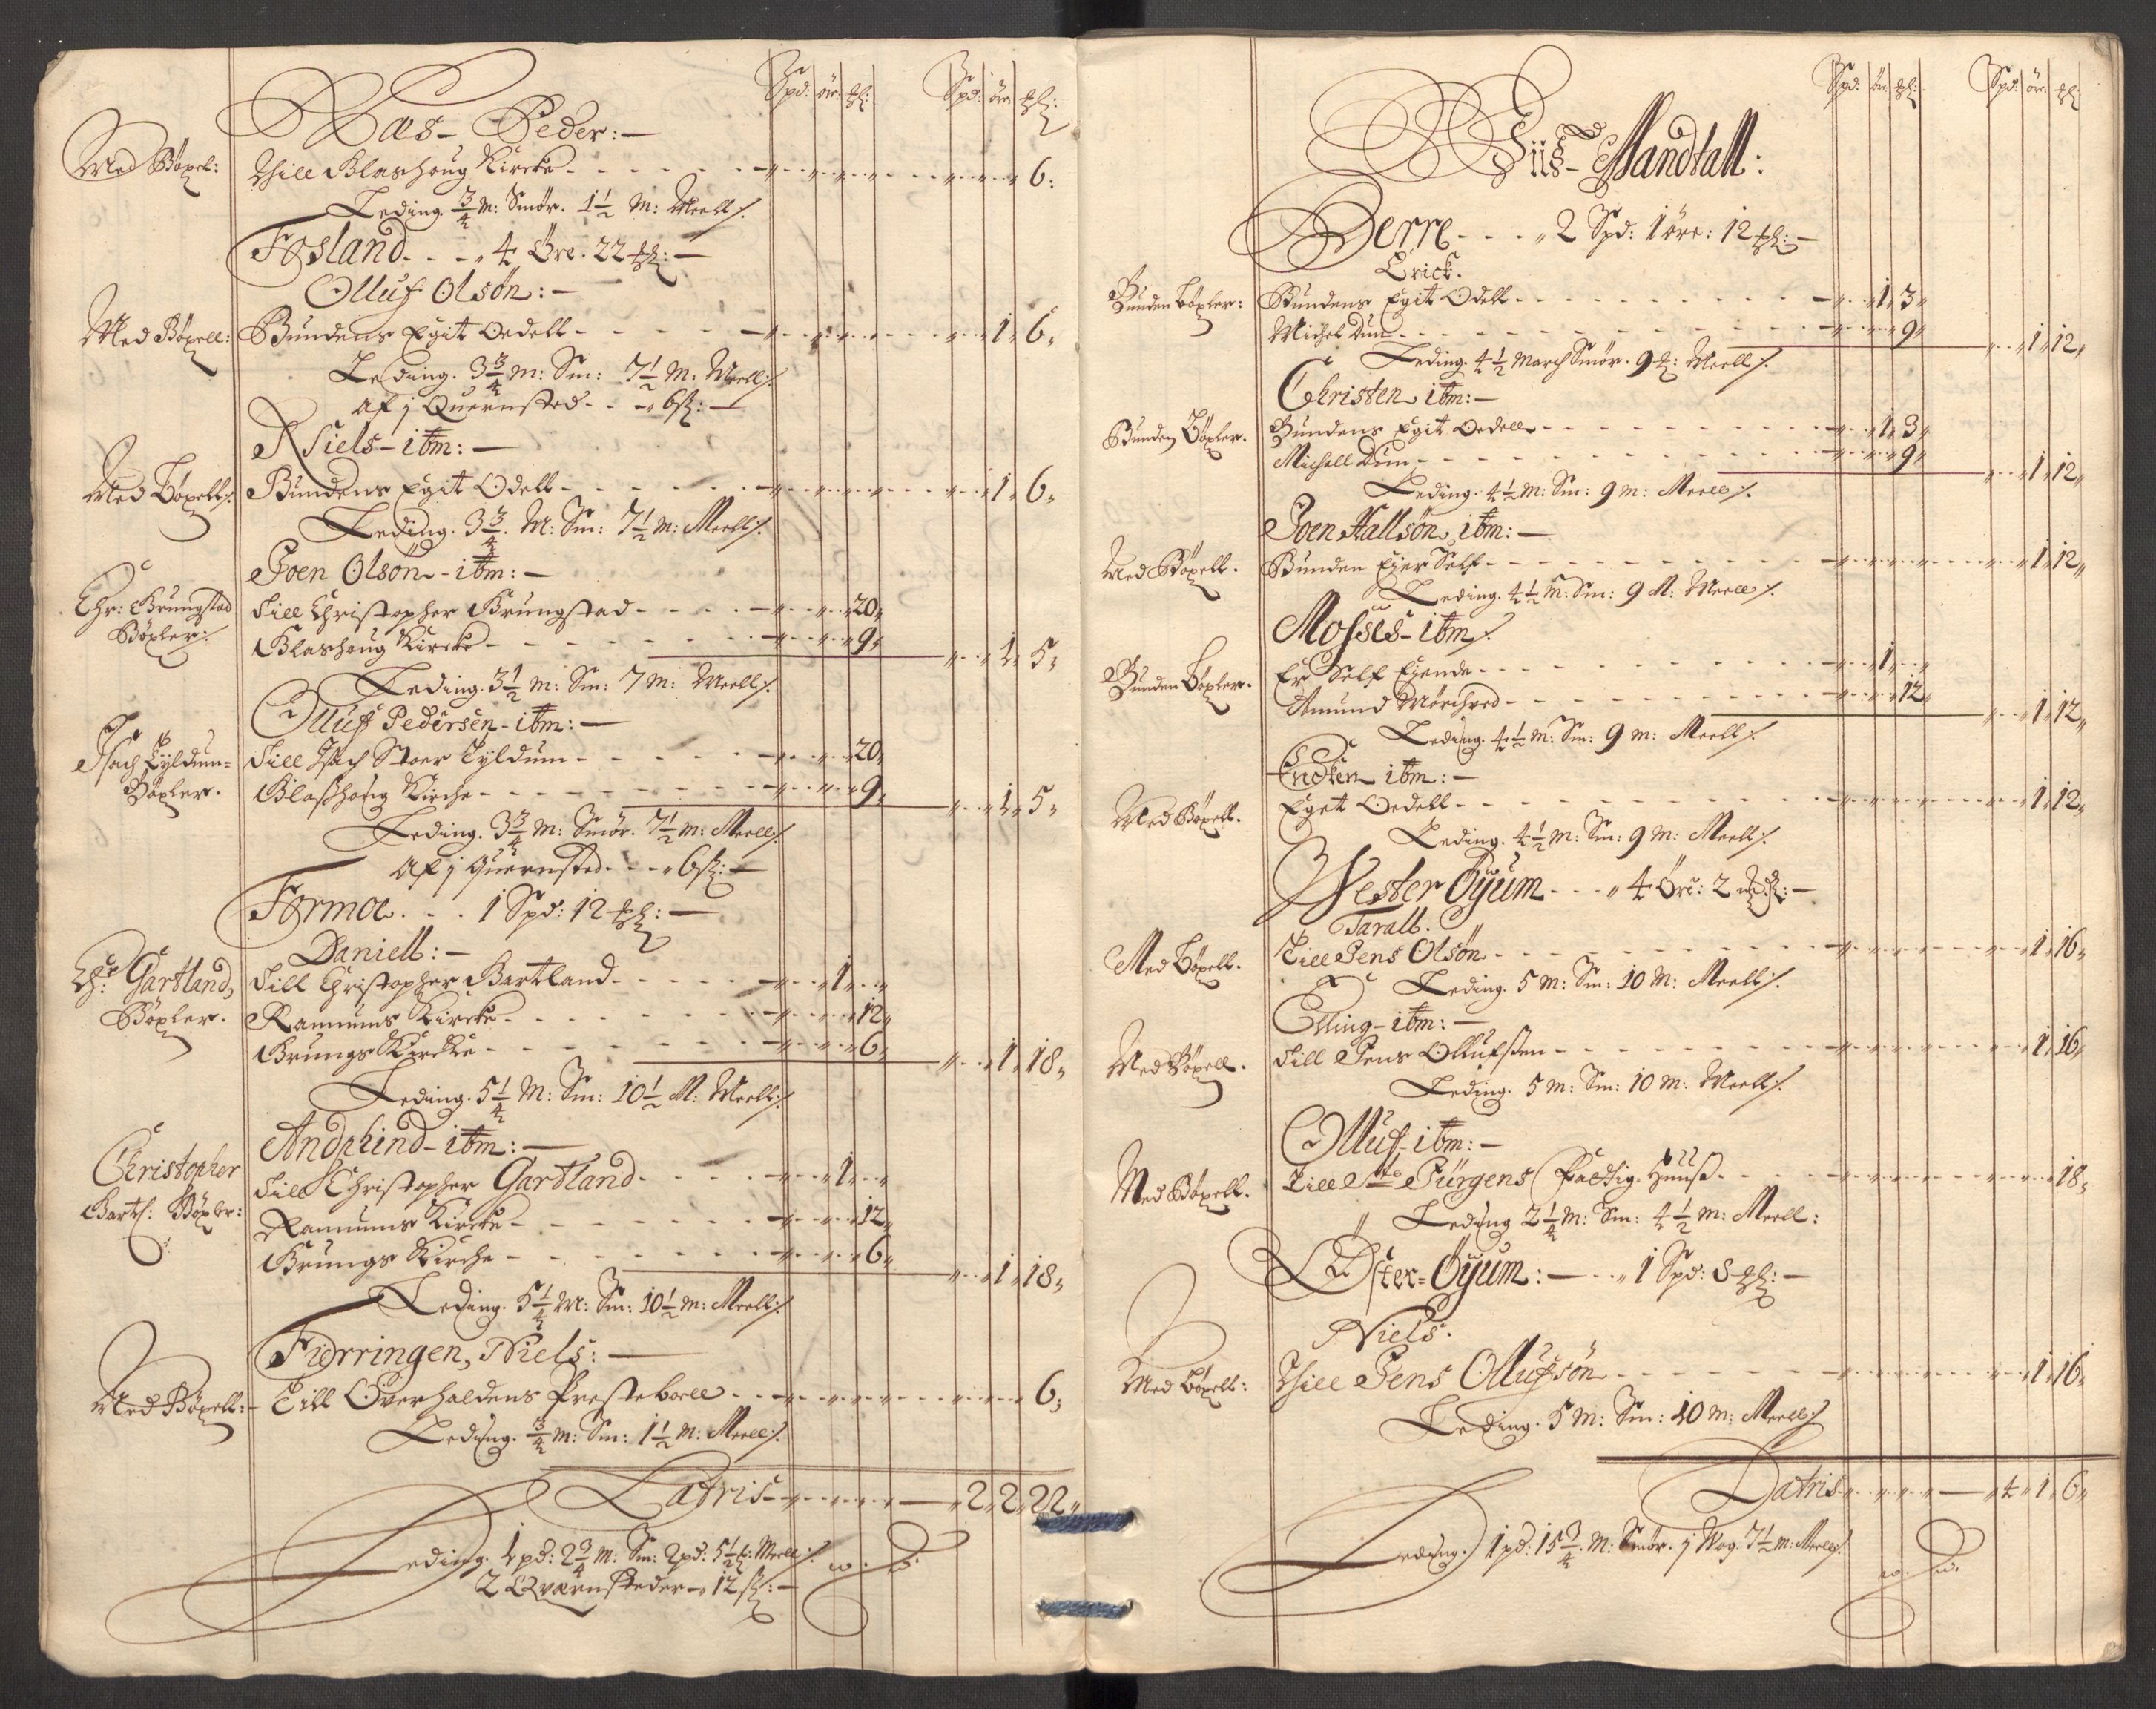 Spd: ör: ȝl: Spd: ör: ȝl:
Aas- Peder:—
Med Böxel: Thill Blashoug Kircke - - - - - 6:
Leding. 3/4 m: Smör. 1 1/2 m: Meell ⁒
Fosland. - - „ 4 Öre. 22 ȝl:—
Olluf Olsön:—
Med Böxell: Bundens Egit Oedell - - - - - 1„ 6„
Leding. 3 3/4 m: Sm: 7 1/2 m: Meell ⁒
Af j Quernsted - - „ 6 ß:—
Niels - itm:—
Med Böxell ⁒ Bundens Egit Odell - - - - - 1„ 6„
Leding. 3 3/4 M: Sm: 7 1/2 m: Meell ⁒
Joen Olsön - itm:—
Chr: Brungstad Till Christopher Brungstad - - - - 20„
Böxler ⁒ Blashoug Kircke - - - - - 9„ 1„ 5„
Leding. 3 1/2 m: Sm: 7 m: Meell ⁒
Olluf Pedersen - itm:—
Isach Tyldum= Till Isach Stoer Tyldum - - - - 20„
Böxler. Blasshoug Kirche - - - - - 9„ 1„ 5„
Leding. 3 3/4 m: Smör. 7 1/2 m: Meell ⁒
Af j Quernsted - - „ 6 ß:—
Formoe . . . 1 Spd: 12 ȝl:—
Daniell:—
Ch: Gartland, Till Christopher Gartland - - - - 1„
Böxler. Ranums Kircke - - - - - 12„
Grungs Kircke - - - - - 6„ 1„ 18„
Leding. 5 1/4 M: Sm: 10 1/2 M: Meell ⁒
Andphind - itm:—
Christopher Till Christopher Gartland - - - - 1„
Gartl: Böxler: Ranums Kircke - - - - - 12„
Grungs Kirche - - - - - 6„ 1„ 18„
Leding. 5 1/4 M: Sm: 10 1/2 m: Meell ⁒
Fiorringen, Niels:—
Med Böxell:- Till Overhaldens Presteboell - - - 6„
Leding. 3/4 m: Sm: 1 1/2 m: Meell ⁒
Latris - - - - — „2„ 2„ 22„
Leding. 1 pd: 2 3/4 m: Sm: 2 pd: 5 1/2 Meell ⁒
2 Qværnsteder - „ 12 ß:—
Spd: ör: ȝl: Spd: ör: ȝl:
Mandtall:
Derre - - - „ 2 Spd: 1 öre: 12 ȝl:—
Erick.
Bunden Böxler: Bundens Egit Odell - - - - - 1„ 3„
Michel Dun - - - - - 9„ 1„ 12„
Leding. 4 1/2 March Smör. 9 Meell ⁒
Christen itm:—
Bunden Böxler. Bundens Egit Oedell - - - - - 1„ 3„
Michell Dun - - - - - 9„ 1„ 12„
Leding. 4 1/2 m: Sm: 9 m: Meell ⁒
Joen Hallsön, itm:—
Med Böxell. Bunden Ejer Self - - - - - 1„ 12„
Leding. 4 1/2 m: Sm: 9 M: Meell ⁒
Mosses - itm ⁒
Bunden Böxler. Er Self Ejende - - - - - 1„
Amund Mörchved - - - - - 12„ 1„ 12„
Leding. 4 1/2 m: Sm: 9 m: Meell ⁒
Endten itm:—
Med Böxell. Eget Oedell - - - - - 1„ 12„
Leding. 4 1/2 m: Sm: 9 m: Meell ⁒
Wester Öyum - - - „ 4 Öre: 2 ȝl:—
Tarald.
Med Böxell. Till Jens Olsön - - - - - 1„ 16„
Leding. 5 m: Sm: 10 M: Meell ⁒
Elling - itm:—
Med Böxell. Till Jens Ollufsen - - - - - 1„ 16„
Leding. 5 m: Sm: 10 m: Meell ⁒
Olluf - itm:—
Med Böxell. Till Ste Jürgens Fattig. Huuss - - - 18„
Leding 2 1/4 m: Sm: 4 1/2 m: Meell:
Öster= Öyum:— - - „ 1 Spd: 8 ȝl:—
Niels.
Med Böxell: Thill Jens Ollufsön - - - - - 1„ 16„
Leding. 5 m: Sm: 10 m: Meell ⁒
Latris - - - — „4„ 1„ 6„
Leding. 1 pd: 15 3/4 M: Smör. j Wog. 7 1/2 m: Meell ⁒